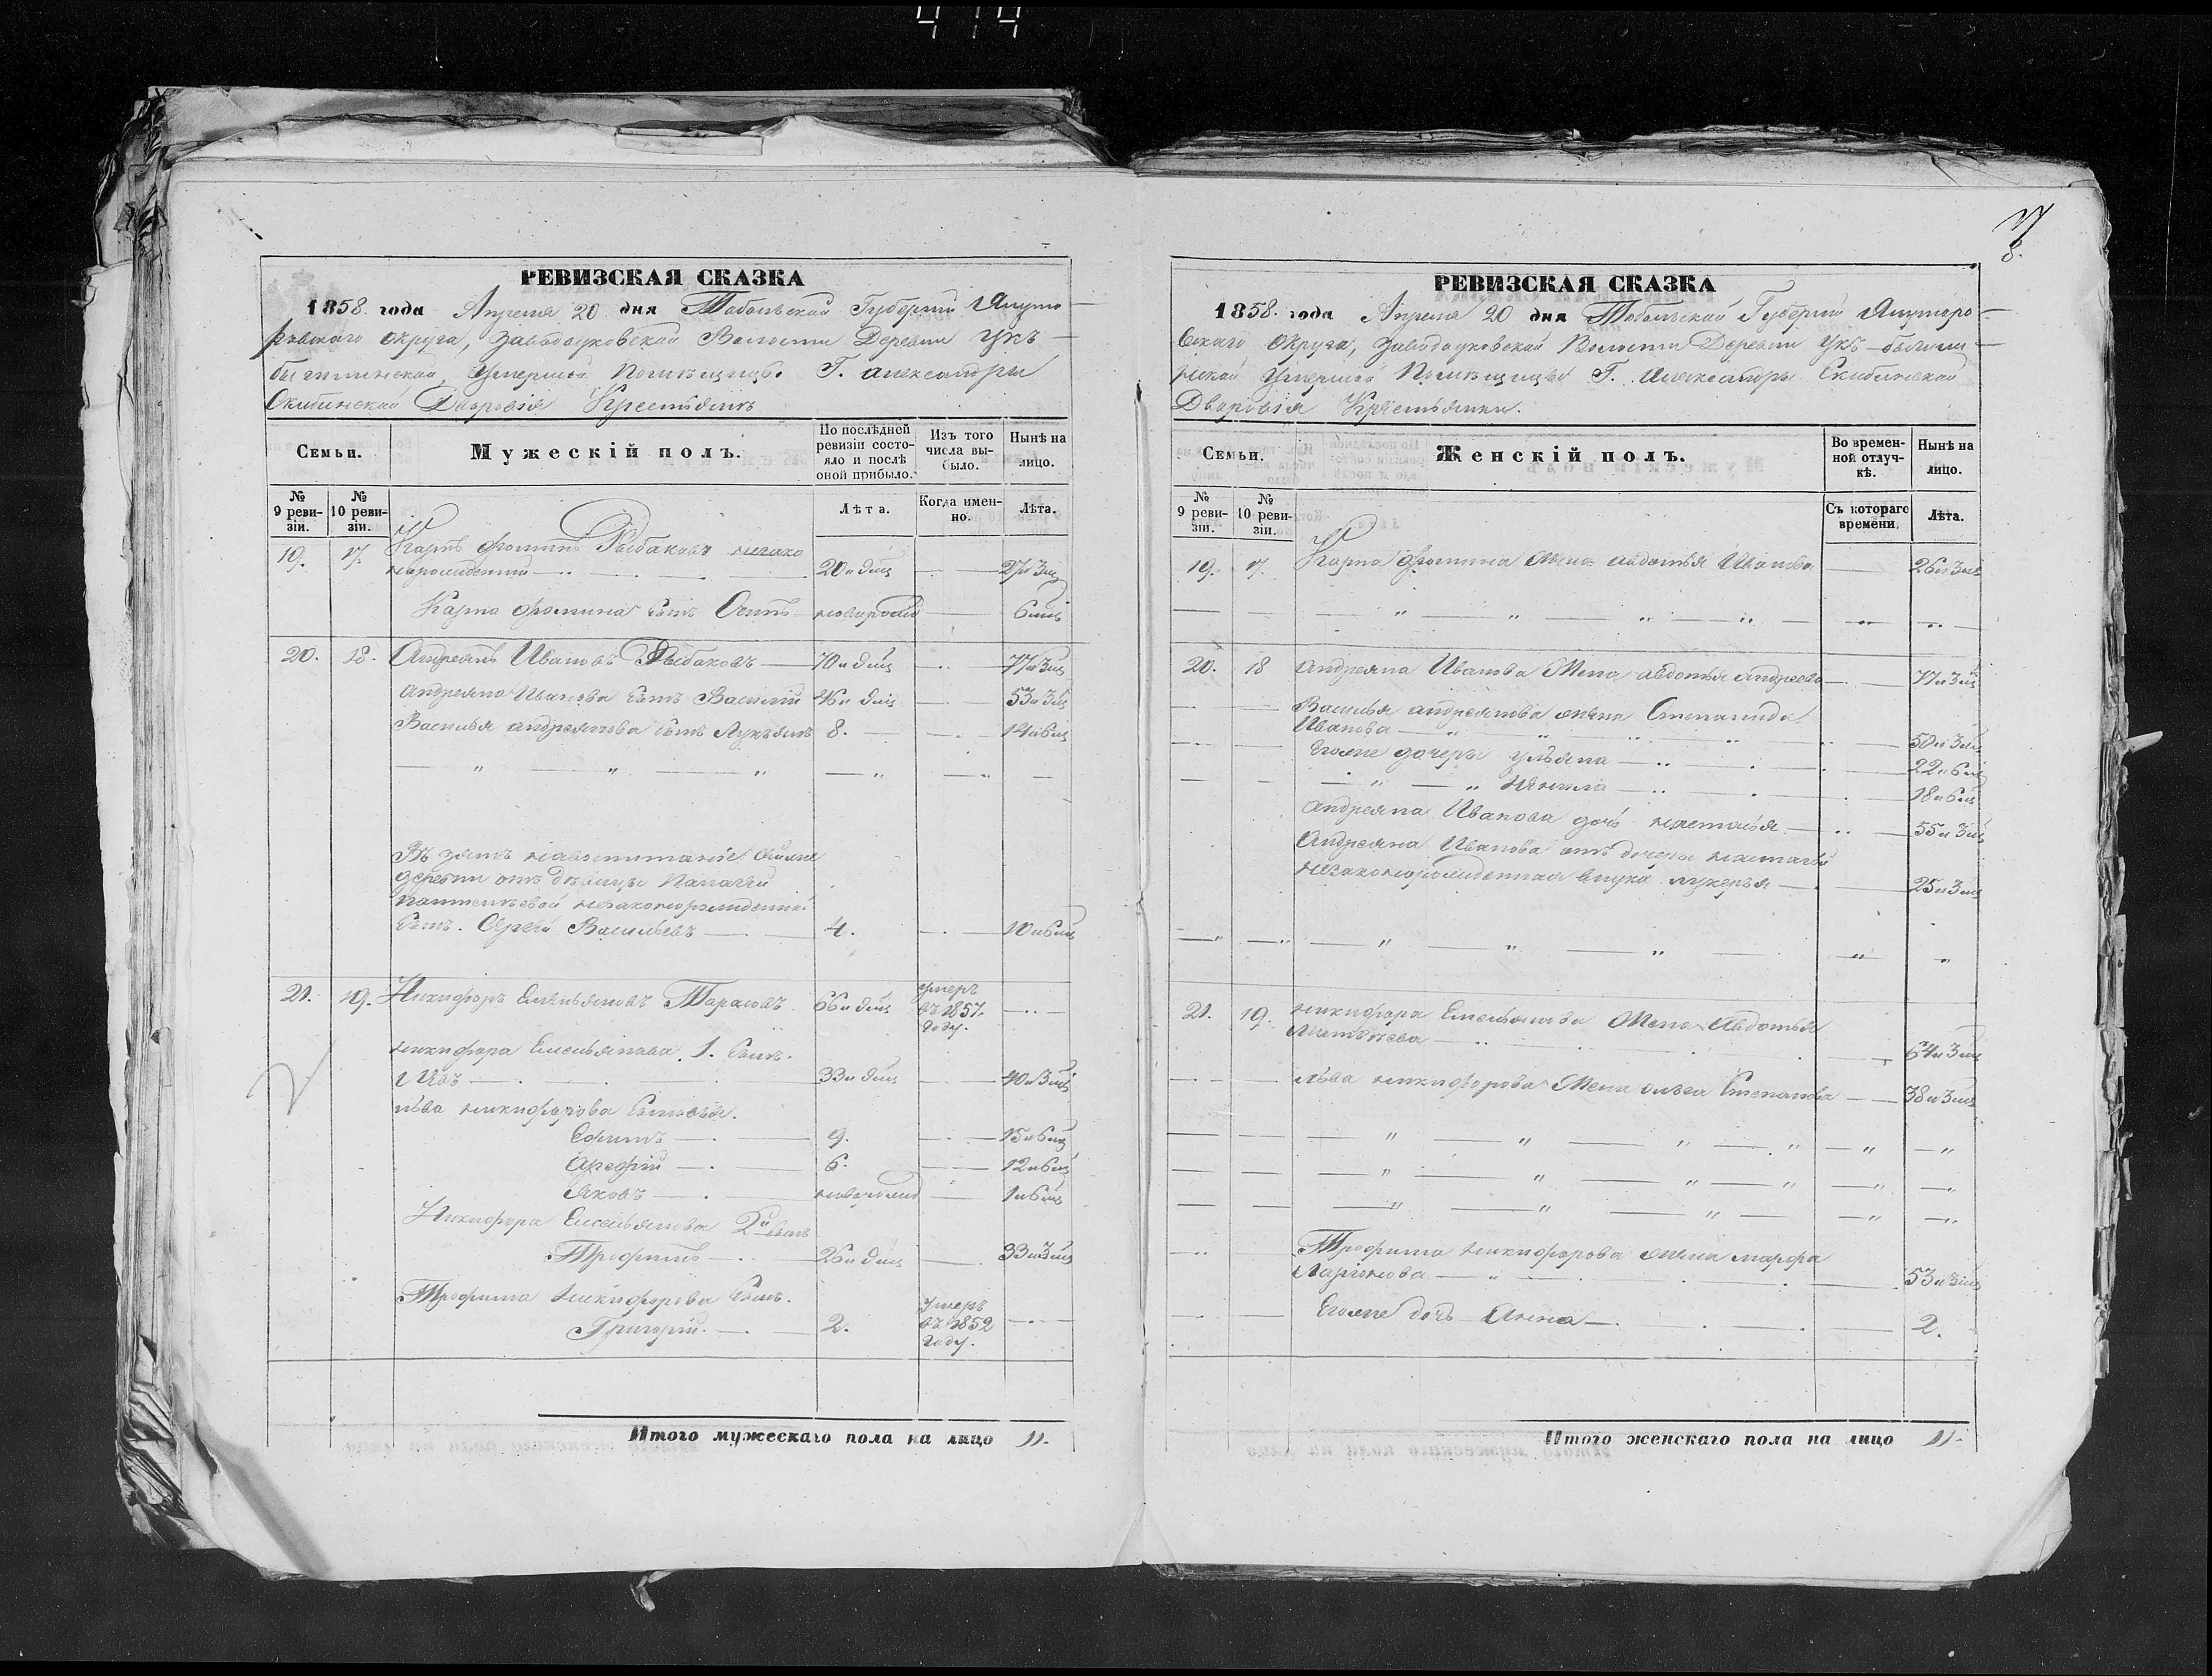 РЕВИЗСКАЯ СКАЗКА
1858. года Апреля 20 дня Тобольской Губерніи Ялуто-
ровскаго Округа, Заводоуковской Волости Деревни Укъ-
Умершей Помѣщицы Г. Александры
Скибинской Дворовыя Крестьянъ
Семьи.
Мужескій полъ.
По послѣдней ревизіи состояло и послѣ оной прибыло.
Изъ того числа выбыло.
Нынѣ на лицо.
№ 9 ревизіи.
№ 10 ревизіи.
Лѣта.
Когда именно.
Лѣта.
19. 17. Карпъ Фоминъ Рыбаковъ незако
норожденный 20 и 9 мц 27 и 3 мц
Карпа Фомина сынъ новорожд 6 мц
20. 18. Андреянъ Ивановъ Рыбаковъ 70 и 9 мц 77 и 3 мц
Андреяна Иванова сынъ Василій 46 и 9 мц 53 и 3 мц
Василья Андреянова сынъ Лукьянъ 8. 14 и 6 мц
Въ зятъ
деревни отъ дѣвицы Палагеи
незаконорожденной
сынъ Сергѣй Васильевъ 4. 10 и 6 мц
21. 19. Никифоръ Емельяновъ Тарасовъ 66 и 9 мц умеръ въ 1857. году.
Никифора Емельянова 1. сынъ.
Левъ 33 и 9 мц 40 и 3 мц
Льва Никифорова сыновья.
Ефимъ 9. 15 и 6 мц
Арефій 6. 12 и 6 мц
Яковъ новорожд 1 и 6 мц
Никифора Емельянова 2й сынъ
Трофимъ 26 и 9 мц 33 и 3 мц
Трофима Никифорова сынъ.
Григорій. 2. умеръ въ 1852 году.
Итого мужескаго пола на лицо 11.
8.
РЕВИЗСКАЯ СКАЗКА
1858. года Апреля 20 дня Тобольской Губерніи Ялуторо-
вскаго Округа, Заводоуковской Волости Деревни Укъ-
Умершей Помѣщицы Г. Александры Скибинской
Дворовыя Крестьянки.
Семьи.
Женскій полъ.
Во временной отлучкѣ.
Нынѣ на лицо.
№ 9 ревизіи.
№ 10 ревизіи.
Съ котораго времени.
Лѣта.
19. 17. Карпа Фомина жена Авдотья Иванова 26 и 3 мц
20. 18 Андреяна Иванова жена Авдотья Андреева 77 и 3 мц
Василья Андреянова жена Степанида
Иванова 50 и 3 мц
Егоже дочери Ульяна 22 и 6 мц
Ненила 18 и 6 мц
Андреяна Иванова дочь Наталья 55 и 3 мц
Андреяна Иванова отъ дочери Натальи
незаконорожденная внука Лукерья 25 и 3 мц
21. 19. Никифора Емельянова жена Авдотья
Матвѣева 64 и 3 мц
Льва Никифорова жена Ольга Степанова 38 и 3 мц
Трофима Никифорова жена Марфа
Ларіонова 53 и 3 мц
Егоже дочь Анна 2.
Итого женскаго пола на лицо 11.